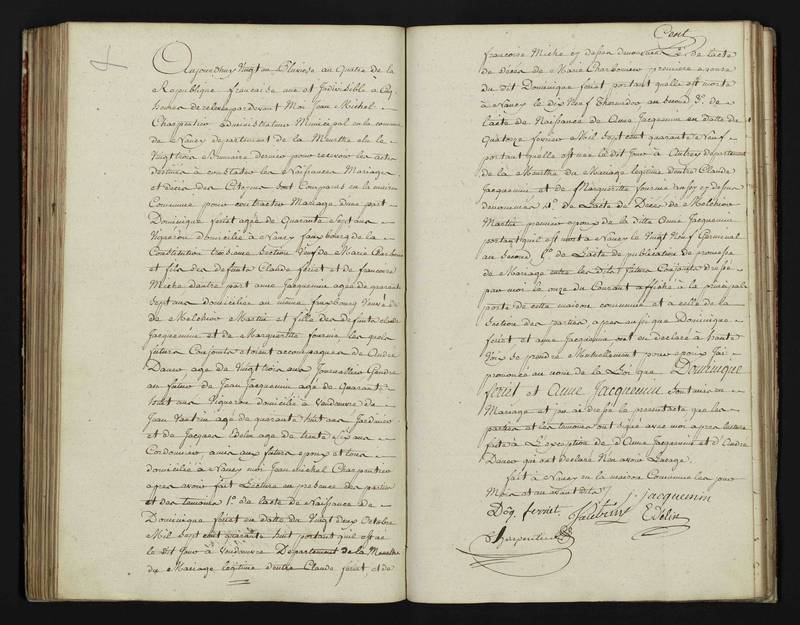 Aujourdhuy Vingt un Pluviose au Quatre de la
Republique francaise une et Indivisible a Cinq
heures de relevé pardevant Moi Jean Michel
Charpentier administrateur Municipal en la commune
de Nancy departement de la Meurthe elu le
Vingt trois Brumaire dernier pour recevoir les actes
destinés a constater les Naissances Mariages
et décès des Citoyens Sont Comparus en la maison
Commune pour contracter Mariage d'une part
Dominique feriet agée de Quarante Sept ans
Vigneron domicilié a Nancy fauxbourg de la
Constitution troisieme Section Veuf de Marie Charbonier
et fils des defunts Claude feriet et de francoise
Miche d'autre part anne Jacquemin agée de quarante
Sept ans domiciliée au même fauxbourg Veuve de
de Melchior Martin et fille des defunts claude
Jacquemin et de Marguerite fournié les quels
futurs Conjoints etoient accompagnés de André
Darcy agé de Vingt trois ans Journallier Gendre
au futur de Jean Jacquemin agé de Quarante
huit ans Vigneron domicilié à Vendeuvre de
Jean agé de quarante huit ans Jardinier
et de Jacques Edelin agé de trente Six ans
Cordonnier, amis aux futurs epoux et tous
domiciliés a Nancy moi Jean Michel Charpentier
apres avoir fait Lecture en presence des parties
et des temoins 1º. de lacte de Naissance de
Dominique feriet en datte du Vingt deux Octobre
Mil Sept cent quarante huit portant quil est né
le dit Jour à Vendeuvre Département de la Meurthe
du Mariage légitime d'entre Claude feriet et de
Cent
francoise Miche cy dessus denommés 2º. de lacte
de décès de Marie Charbonier premiere epouse
du dit Dominique feriet portant quelle est morte
a Nancy le dix Neuf thermidor au Second 3º. de
lacte de Naissance de Anne Jacquemin en datte de
Quatorze fevrier Mil Sept cent quarante Neuf
portant quelle est née le dit Jour à Autrey departement
de la Meurthe du Mariage légitime d'entre Claude
Jacquemin et de Marguerite fournié aussy cy dessus
denommés 4º. de Lacte de Décès de Melchior
Martin premier epoux de la ditte Anne Jacquemin
portant quil est mort a Nancy le Vingt Neuf Germinal
au Second 5º. de Lacte de publication de promesse
de Mariage entre les dits futurs Conjoints dressé
par moi le onze du Courant affiché à la principale
porte de cette maison commune et a celle de la
Section des parties, apres aussi que Dominique
feriet et anne Jacquemin ont eu declaré à haute
Voix Se prendre Mutuellement pour epoux J'ai
prononcé au nom de la Loi que Dominique
feriet et Anne Jacquemin Sont unis en
Mariage et j'ai rédigé le present acte que les
parties et les temoins ont signé avec moi apres lecture
faite à L'exception de d'Anne Jacquemin et d'André
Darcy qui ont declaré N'en avoir Lusage.
fait à Nancy en la maison Commune les jour
Mois et an avant dits.
J. Jacquemin
Dög. ferriet Edelin
Charpentier